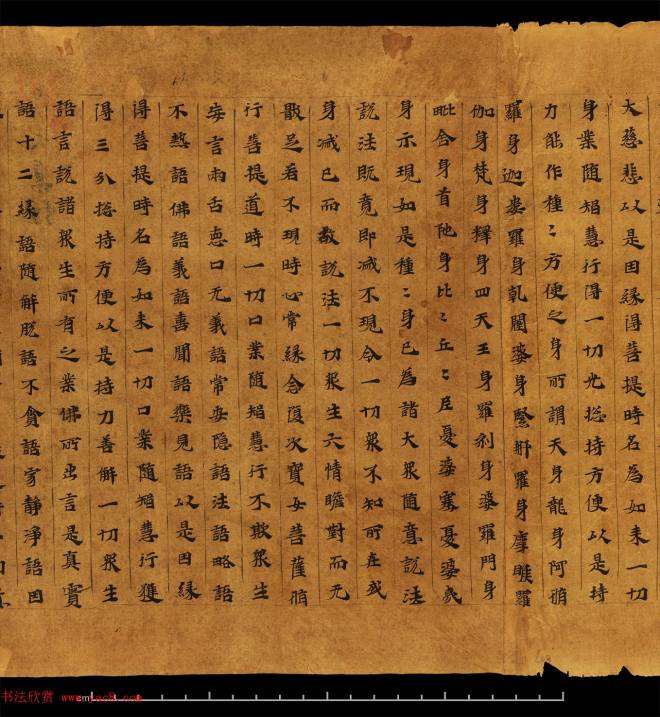 大慈悲以是因緣得菩提時名為如来一切
身業隨智慧行得一切光捴持方便以是持
力能作種〻方便之身所謂天身龍身阿脩
羅身迦婁羅身乹闥婆身緊䏻羅身摩睺羅
伽身梵身釋身四天王身羅刹身婆羅門身
毗舍身首陁身比〻丘〻尼憂婆塞憂婆夷
身示現如是種〻身已為諸大衆随意說法
說法既竟即滅不現令一切衆不知所在或
身滅已而教說法一切衆生六情瞻對而无
猒足若不現時心常緣念復次寶女菩薩脩
行菩提道時一切口業随智慧行不欺衆生
妄言兩舌惡口无義語常安隱語法語略語
不熱語佛語義語喜聞語樂見語以是因緣
得菩提時名為如来一切口業随智慧行獲
得三分捴持方便以是持力善解一切衆生
語言說諸衆生所有之業佛所出言是真實
語十二緣語随解脫語不貪語寂静淨語因
书法欣赏